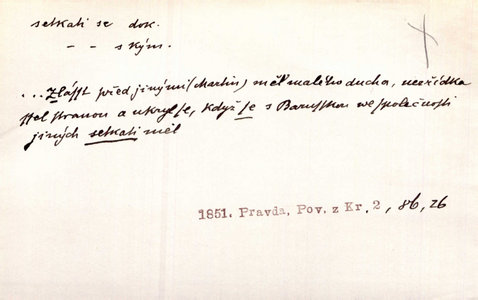 setkati se dok.
- - s kým.
... Zlášt před jinými (Martin) měl malého ducha, nezřídka
šel stranou a ukryl se, když se s Baruškou ve společnosti
jiných setkati měl
1851. Pravda, Pov. z Kr. 2, 86, 26